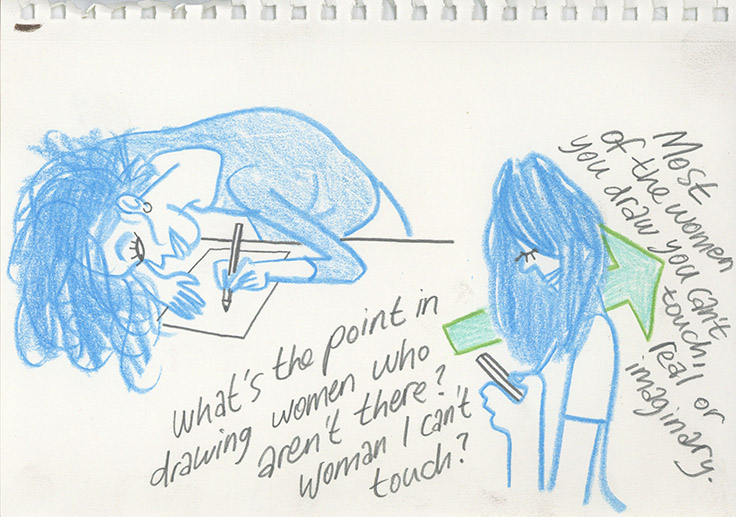 What's the point in
drawing women who
aren't there?
Woman I can't
touch?
Most
of the women
you draw you can't
touch,
real or
imaginary.